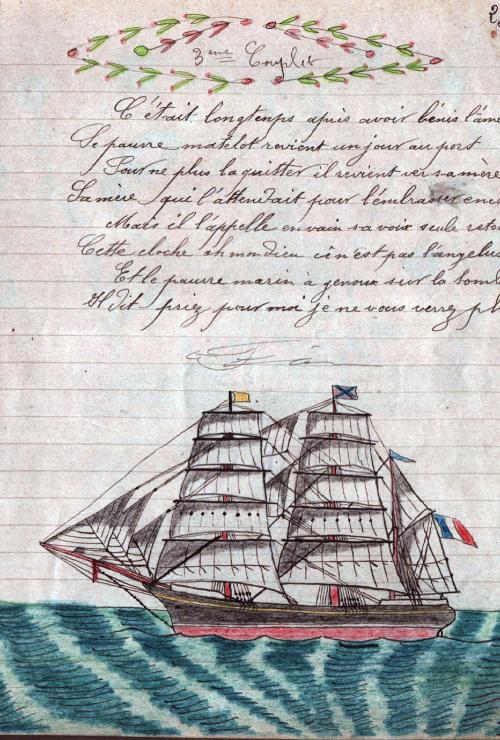 3eme Couplet
C'était longtemps après avoir bénis l'âme
Le pauvre matelot revient un jour au port
Pour ne plus la quitter il revient vers sa mère
Sa mère qui l'attendait pour l'embrasser enco
Mais il l'appelle en vain sa voix seule reto
Cette cloche oh mon dieu ce n'est pas l'angelu
Et le pauvre marin a genoux sur la tomb
Il dit priez pour moi je ne vous verrez pl
Fin